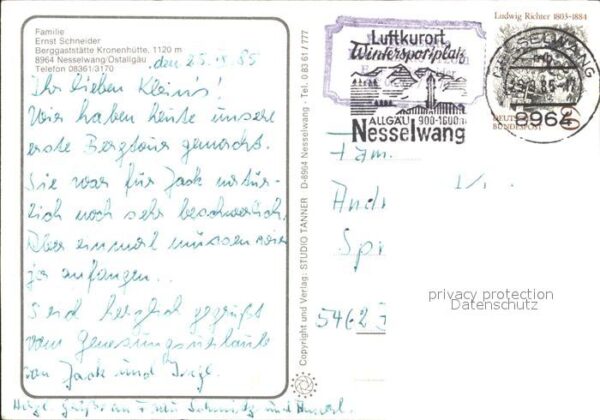 Familie
Ernst Schneider
Berggaststätte Kronenhütte, 1120 m
8964 Nesselwang/Ostallgäu
Telefon 08361/3170
den 25.8.85
Ihr lieben Klein's!
Wir haben heute unsere
erste Bergtour gemacht.
Sie war für Jack natür-
lich noch sehr beschwerlich.
Aber einmal müssen wir
ja anfangen..
Seid herzlich gegrüßt
vom Genesungsurlaub
von Jack und Inge.
Herzl. Grüße an Frau Schmitz und
Copyright und Verlag: STUDIO TANNER D-8964 Nesselwang - Tel. 0 83 61 / 777
Luftkurort
Wintersportplatz
ALLGÄU 900-1600m
Nesselwang
Ludwig Richter 1803-1884
NESSELWANG
8964
DEUTSCHE
BUNDESPOST
Fam.
Andr
Spr
5462
privacy protection
Datenschutz